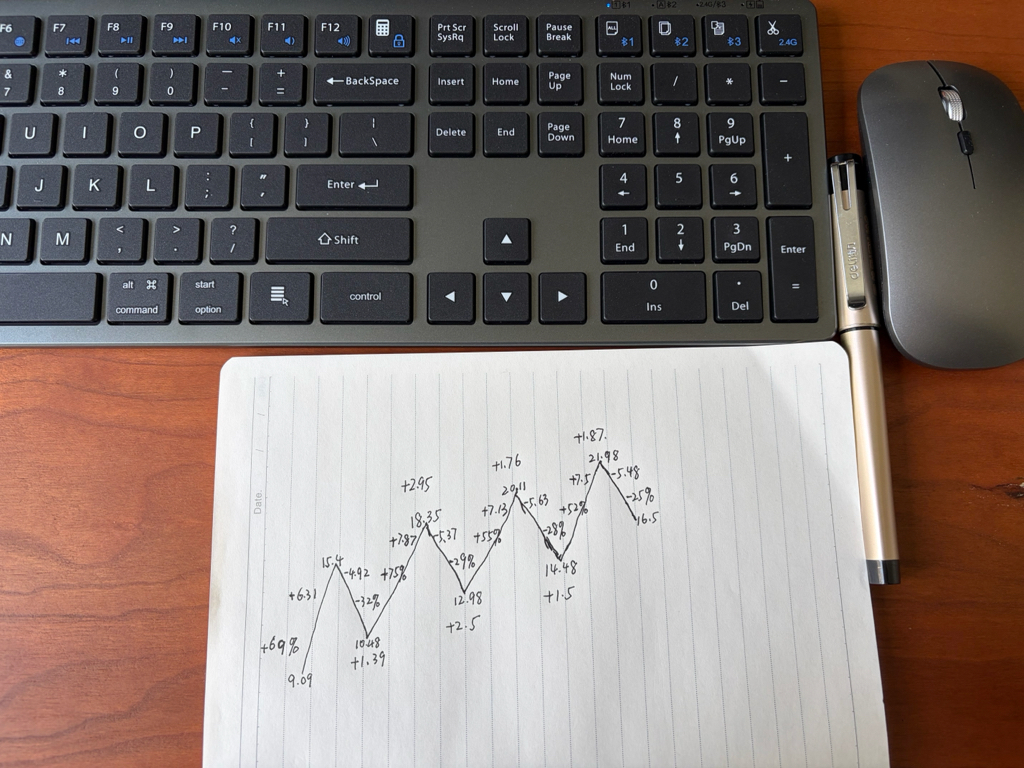 F6 F7 F8 F9 F10 F11 F12 Prt Scr SysRq Scroll Lock Pause Break ALL 1 2 3 2.4G
& 7 * 8 ( 9 ) 0 — - + = ←BackSpace Insert Home Page Up Num Lock / * −
U I O P { [ } ] | \ Delete End Page Down 7 Home 8 9 PgUp +
J K L : ; " , Enter 4 5 6
N M < , > . ? / Shift 1 End 2 3 PgDn Enter =
alt ⌘ command start option control 0 Ins . Del
deli
Date.
+1.87.
21.98
+1.76
+7.5 -5.48
+2.95
20.11
-25%
+7.13 -5.63
+52%
16.5
18.35
-28%
+7.87 -5.37
+55%
15.4
-29%
14.48
-4.92 +75%
+6.31
-32%
12.98
+1.5
+2.5
10.48
+69%
+1.39
9.09